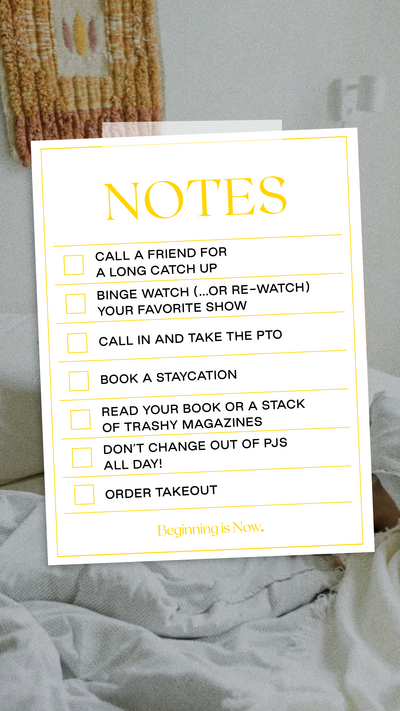 NOTES
CALL A FRIEND FOR
A LONG CATCH UP
BINGE WATCH (...OR RE-WATCH)
YOUR FAVORITE SHOW
CALL IN AND TAKE THE PTO
BOOK A STAYCATION
READ YOUR BOOK OR A STACK
OF TRASHY MAGAZINES
DON'T CHANGE OUT OF PJS
ALL DAY!
ORDER TAKEOUT
Beginning is Now.